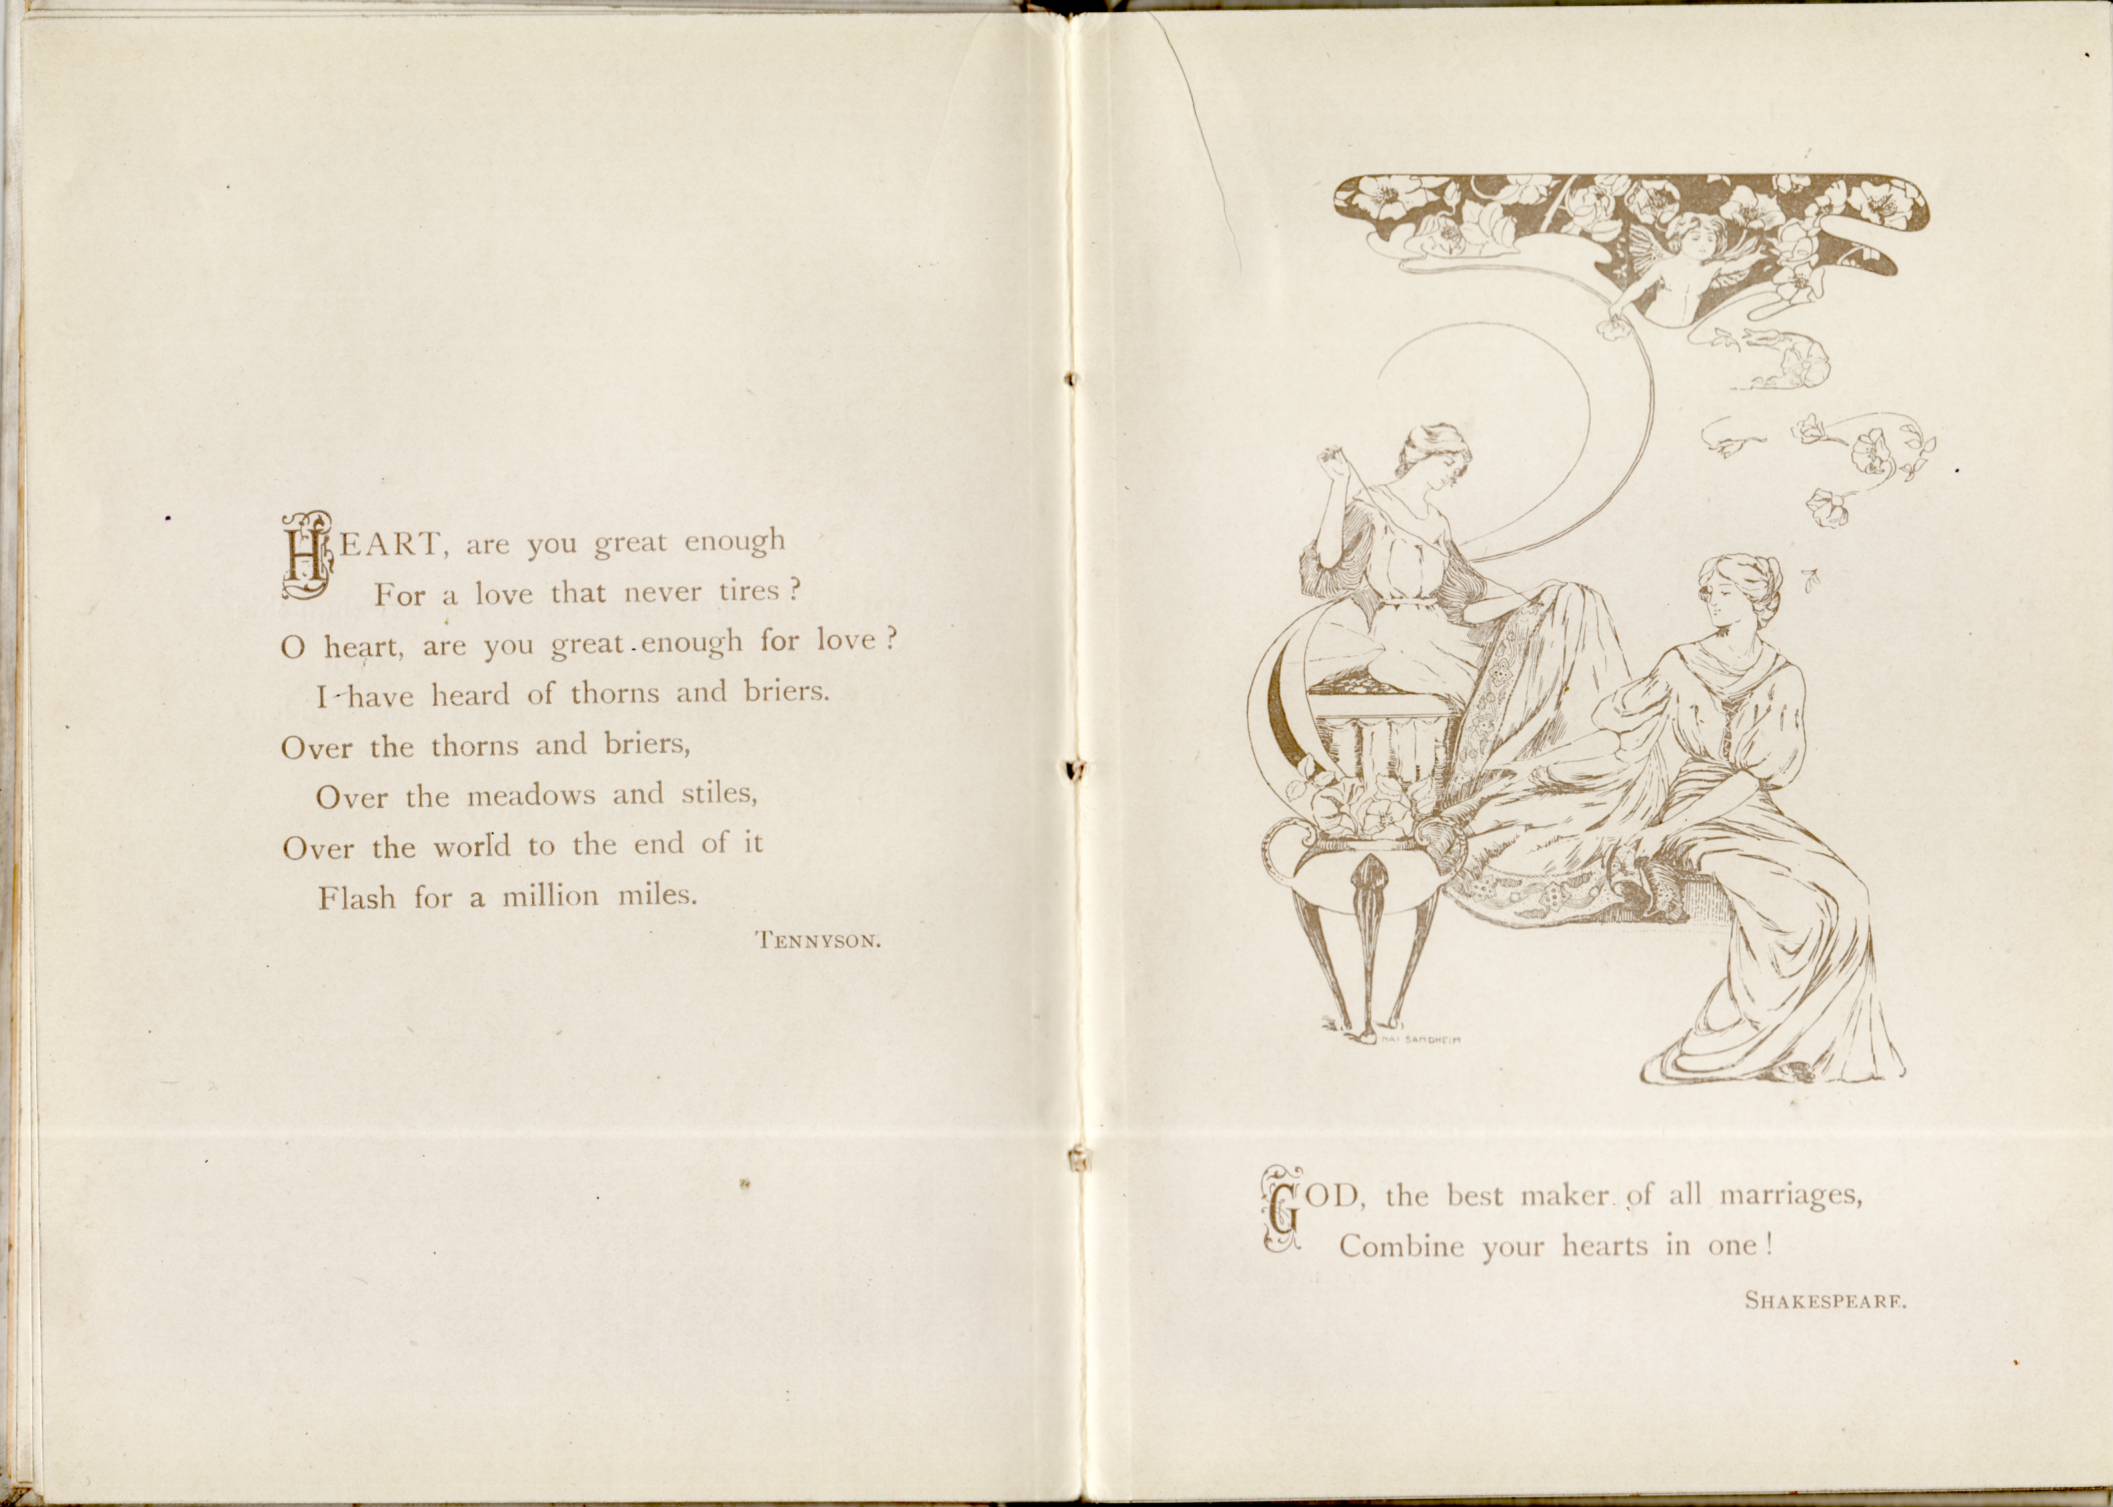 HEART, are you great enough
For a love that never tires?
O heart, are you great enough for love?
I have heard of thorns and briers.
Over the thorns and briers,
Over the meadows and stiles,
Over the world to the end of it
Flash for a million miles.
TENNYSON.
SANDHEIM
GOD, the best maker of all marriages,
Combine your hearts in one!
SHAKESPEARE.